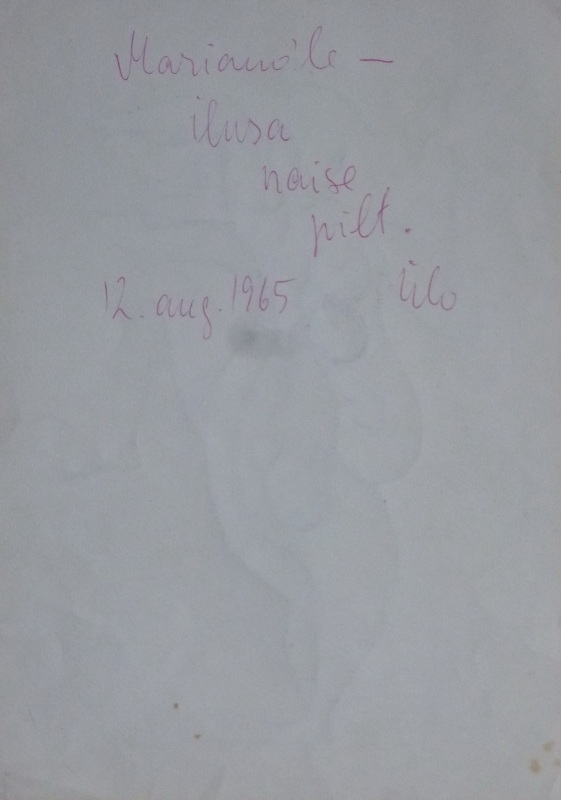 Mariano'le —
ilusa
naise
pilt.
12. aug. 1965
Ülo